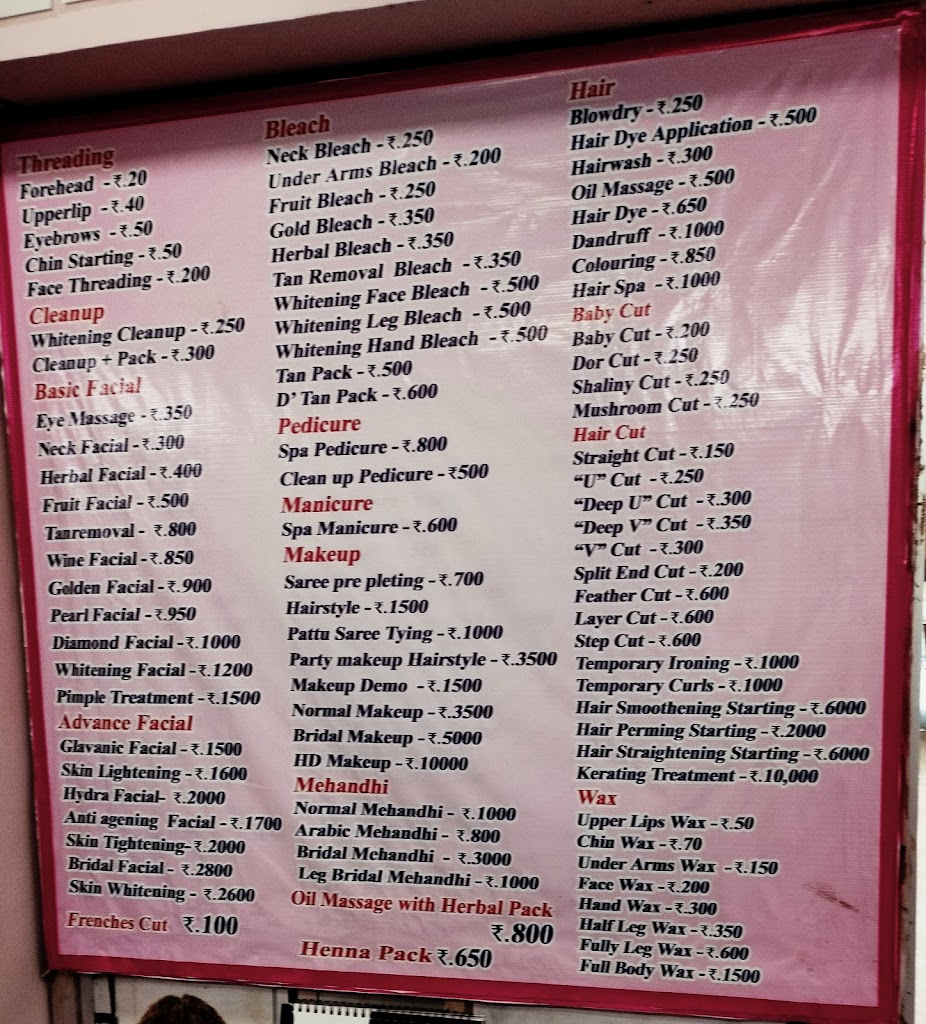 Threading
Forehead - ₹.20
Upperlip - ₹.40
Eyebrows - ₹.50
Chin Starting - ₹.50
Face Threading - ₹.200
Cleanup
Whitening Cleanup - ₹.250
Cleanup + Pack - ₹.300
Basic Facial
Eye Massage - ₹.350
Neck Facial - ₹.300
Herbal Facial - ₹.400
Fruit Facial - ₹.500
Tanremoval - ₹.800
Wine Facial - ₹.850
Golden Facial - ₹.900
Pearl Facial - ₹.950
Diamond Facial - ₹.1000
Whitening Facial - ₹.1200
Pimple Treatment - ₹.1500
Advance Facial
Glavanic Facial - ₹.1500
Skin Lightening - ₹.1600
Hydra Facial- ₹.2000
Anti agening Facial - ₹.1700
Skin Tightening- ₹.2000
Bridal Facial - ₹.2800
Skin Whitening - ₹.2600
Frenches Cut ₹.100
Bleach
Neck Bleach - ₹.250
Under Arms Bleach - ₹.200
Fruit Bleach - ₹.250
Gold Bleach - ₹.350
Herbal Bleach - ₹.350
Tan Removal Bleach - ₹.350
Whitening Face Bleach - ₹.500
Whitening Leg Bleach - ₹.500
Whitening Hand Bleach - ₹.500
Tan Pack - ₹.500
D' Tan Pack - ₹.600
Pedicure
Spa Pedicure - ₹.800
Clean up Pedicure - ₹500
Manicure
Spa Manicure - ₹.600
Makeup
Saree pre pleting - ₹.700
Hairstyle - ₹.1500
Pattu Saree Tying - ₹.1000
Party makeup Hairstyle - ₹.3500
Makeup Demo - ₹.1500
Normal Makeup - ₹.3500
Bridal Makeup - ₹.5000
HD Makeup - ₹.10000
Mehandhi
Normal Mehandhi - ₹.1000
Arabic Mehandhi - ₹.800
Bridal Mehandhi - ₹.3000
Leg Bridal Mehandhi - ₹.1000
Oil Massage with Herbal Pack
₹.800
Henna Pack ₹.650
Hair
Blowdry - ₹.250
Hair Dye Application - ₹.500
Hairwash - ₹.300
Oil Massage - ₹.500
Hair Dye - ₹.650
Dandruff - ₹.1000
Colouring - ₹.850
Hair Spa - ₹.1000
Baby Cut
Baby Cut - ₹.200
Dor Cut - ₹.250
Shaliny Cut - ₹.250
Mushroom Cut - ₹.250
Hair Cut
Straight Cut - ₹.150
“U” Cut - ₹.250
“Deep U” Cut - ₹.300
“Deep V” Cut - ₹.350
“V” Cut - ₹.300
Split End Cut - ₹.200
Feather Cut - ₹.600
Layer Cut - ₹.600
Step Cut - ₹.600
Temporary Ironing - ₹.1000
Temporary Curls - ₹.1000
Hair Smoothening Starting - ₹.6000
Hair Perming Starting - ₹.2000
Hair Straightening Starting - ₹.6000
Kerating Treatment - ₹.10,000
Wax
Upper Lips Wax - ₹.50
Chin Wax - ₹.70
Under Arms Wax - ₹.150
Face Wax - ₹.200
Hand Wax - ₹.300
Half Leg Wax - ₹.350
Fully Leg Wax - ₹.600
Full Body Wax - ₹.1500